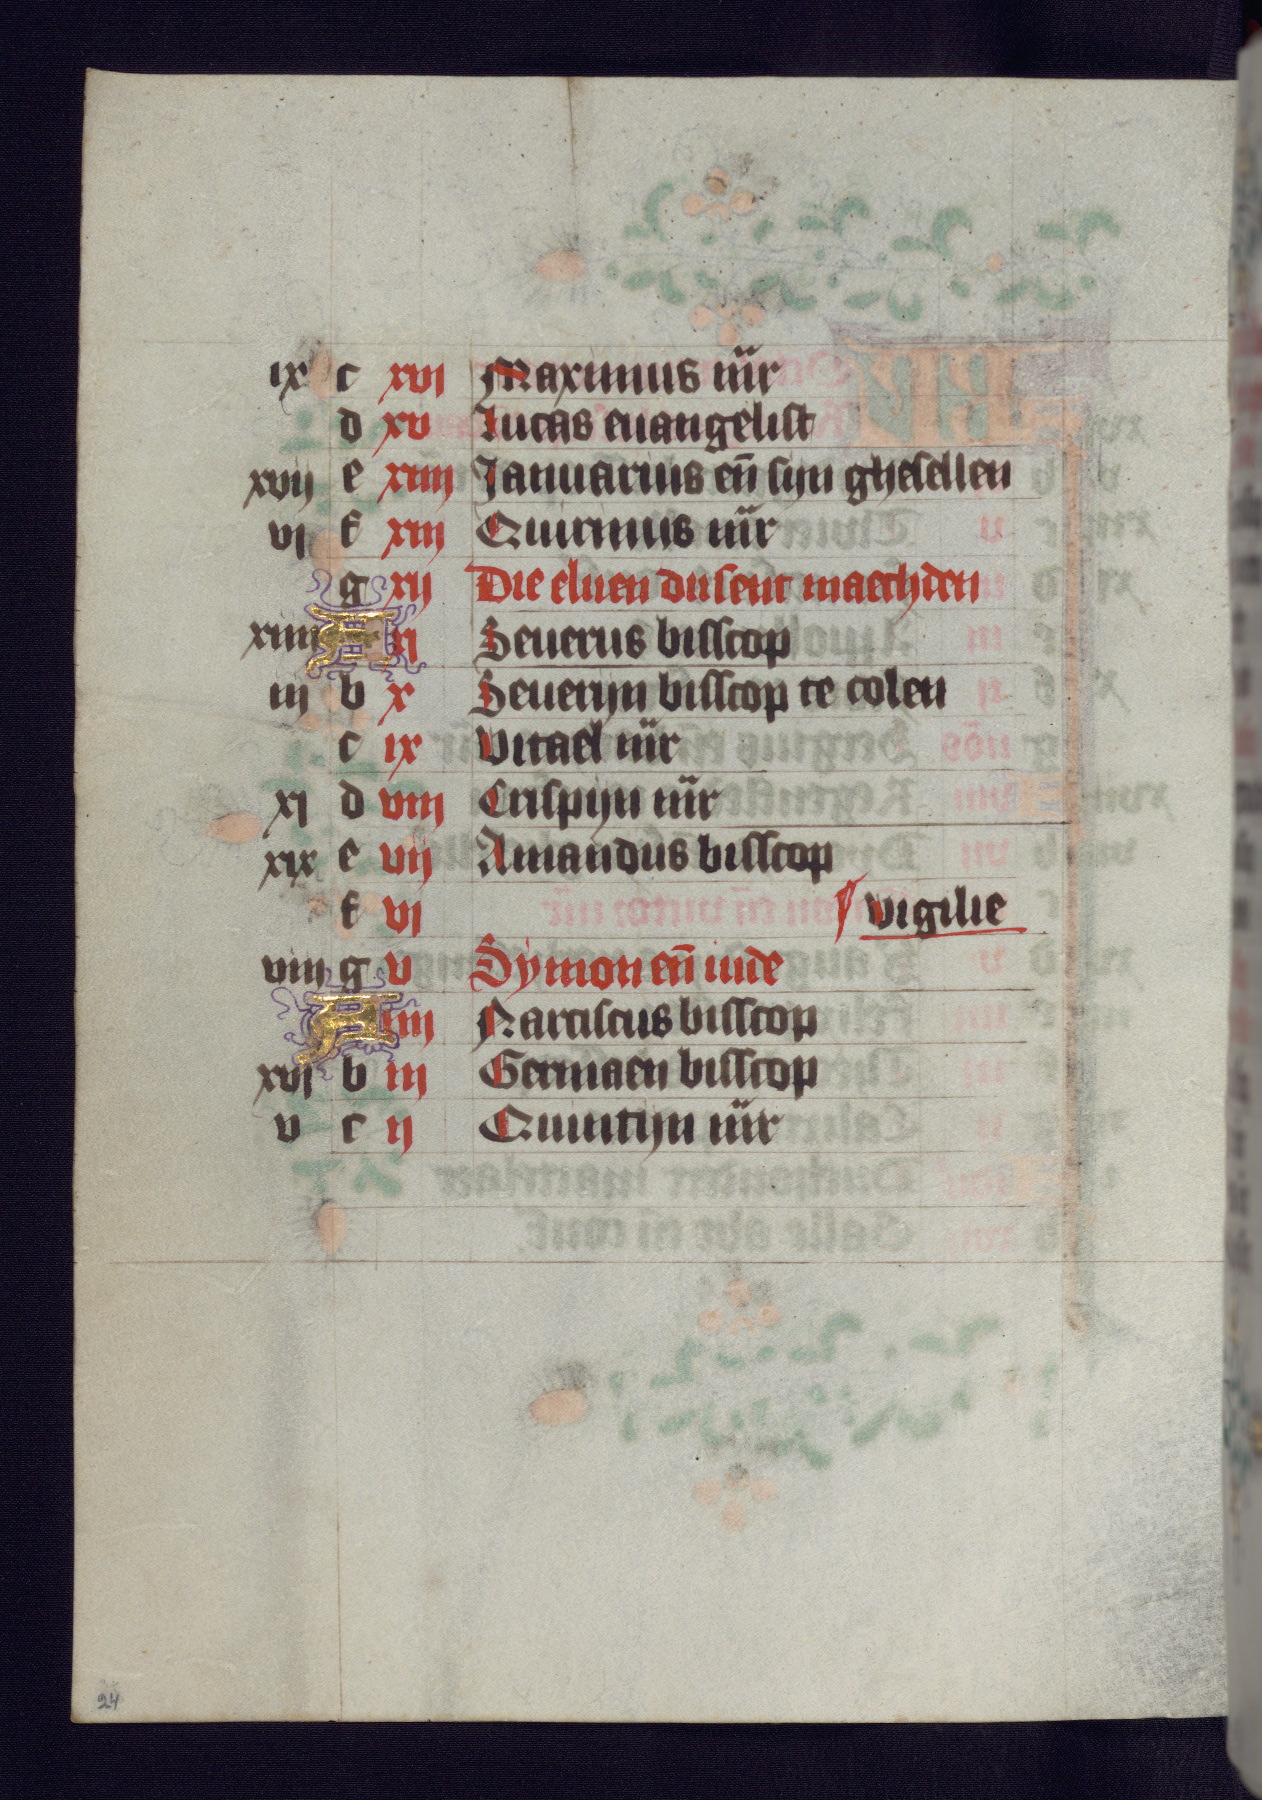 ix c xvi Maximus m̄r
d xv Lucas euangelist
xvij e xiiij Januarius eñ sijn ghesellen
vj f xiij Quirinus m̄r
g xij Die eluen dusent maechden
xiiij A xj Seuerus bisscop
iij b x Seuerijn bisscop te colen
c ix Vitael m̄r
xj d viij Crispijn m̄r
xix e vij Amandus bisscop
f vj ¶ vigilie
viij g v Symon eñ iude
A iiij Narciscus bisscop
xvj b iij Germaen bisscop
v c ij Quintijn m̄r
24